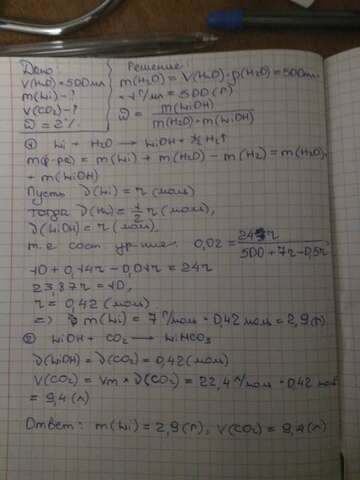 Дано:
V(H2O)=500мл
m(Li)-?
V(CO2)-?
ω=2%
Решение:
m(H2O)=V(H2O)·ρ(H2O)=500мл·
·1г/мл=500(г)
ω=m(LiOH)/m(H2O)+m(LiOH)
① Li + H2O → LiOH + ½H2↑
m(р-ра)=m(Li)+m(H2O)-m(H2)=m(H2O)+
+ m(LiOH)
Пусть ν(Li)=r(моль)
Тогда ν(H2)=½r(моль),
ν(LiOH)=r(моль),
т.е. сост ур-ние: 0,02=24r/500+7r-0,5r,
10+0,14r-0,01r=24r
23,87r=10,
r=0,42(моль)
=> m(Li)=7г/моль·0,42моль=2,9(г)
② LiOH + CO2 → LiHCO3
ν(LiOH)=ν(CO2)=0,42(моль)
V(CO2)=Vm×ν(CO2)=22,4л/моль·0,42моль
=9,4(л)
Ответ: m(Li)=2,9(г), V(CO2)=9,4(л)